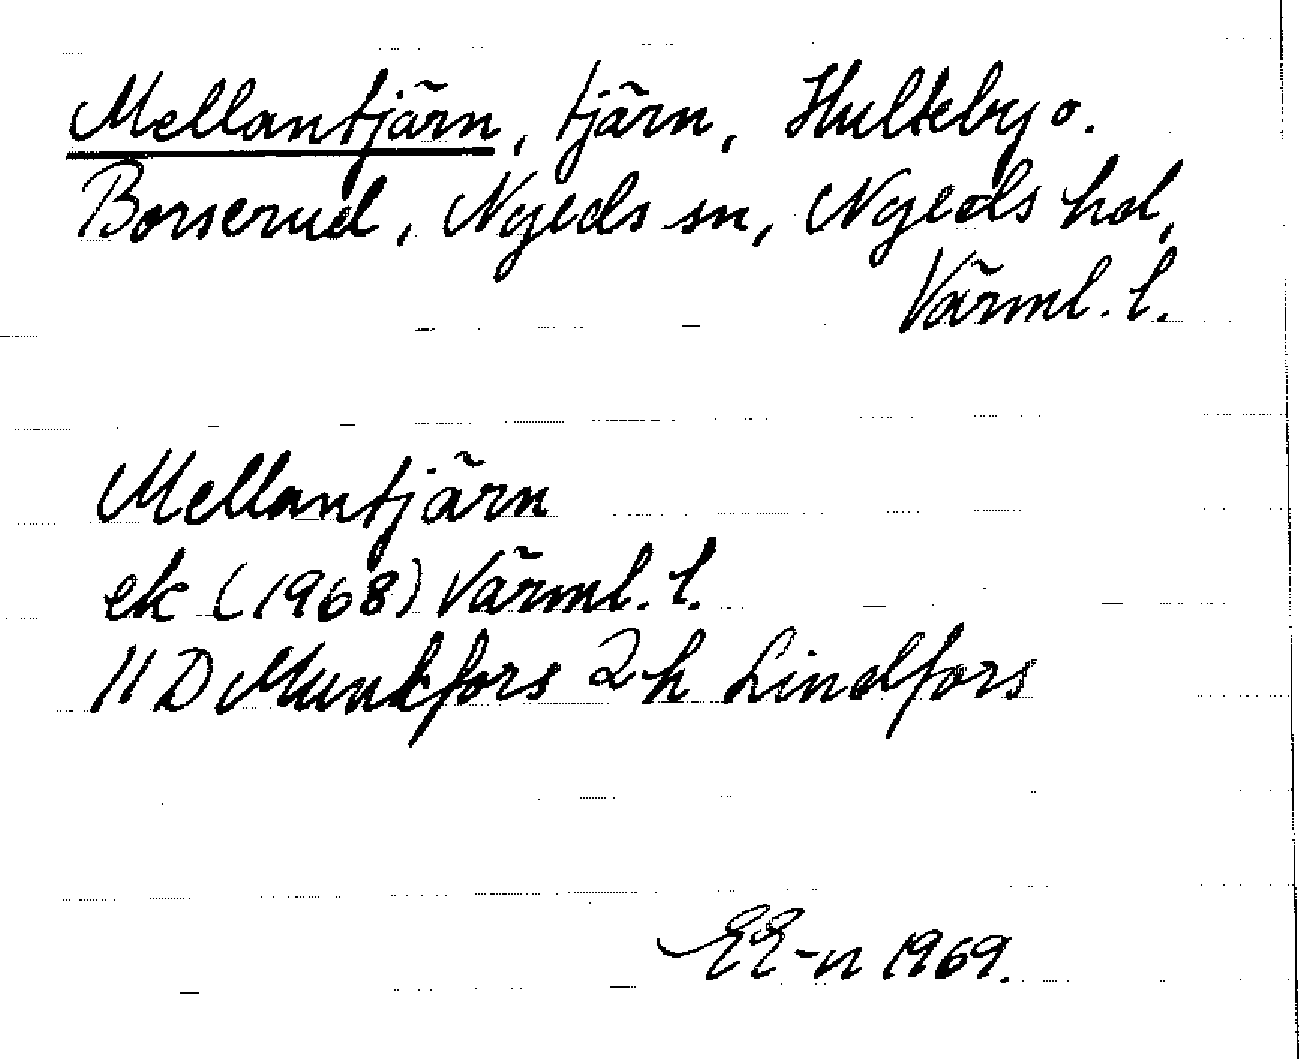 Mellantjärn, tjärn, Hulteby o.
Borserud, Nyeds sn, Nyeds hd,
Värml. l.
Mellantjärn
ek (1968) Värml. l.
11 D Munkfors 2 h Lindfors
EE-n 1969.